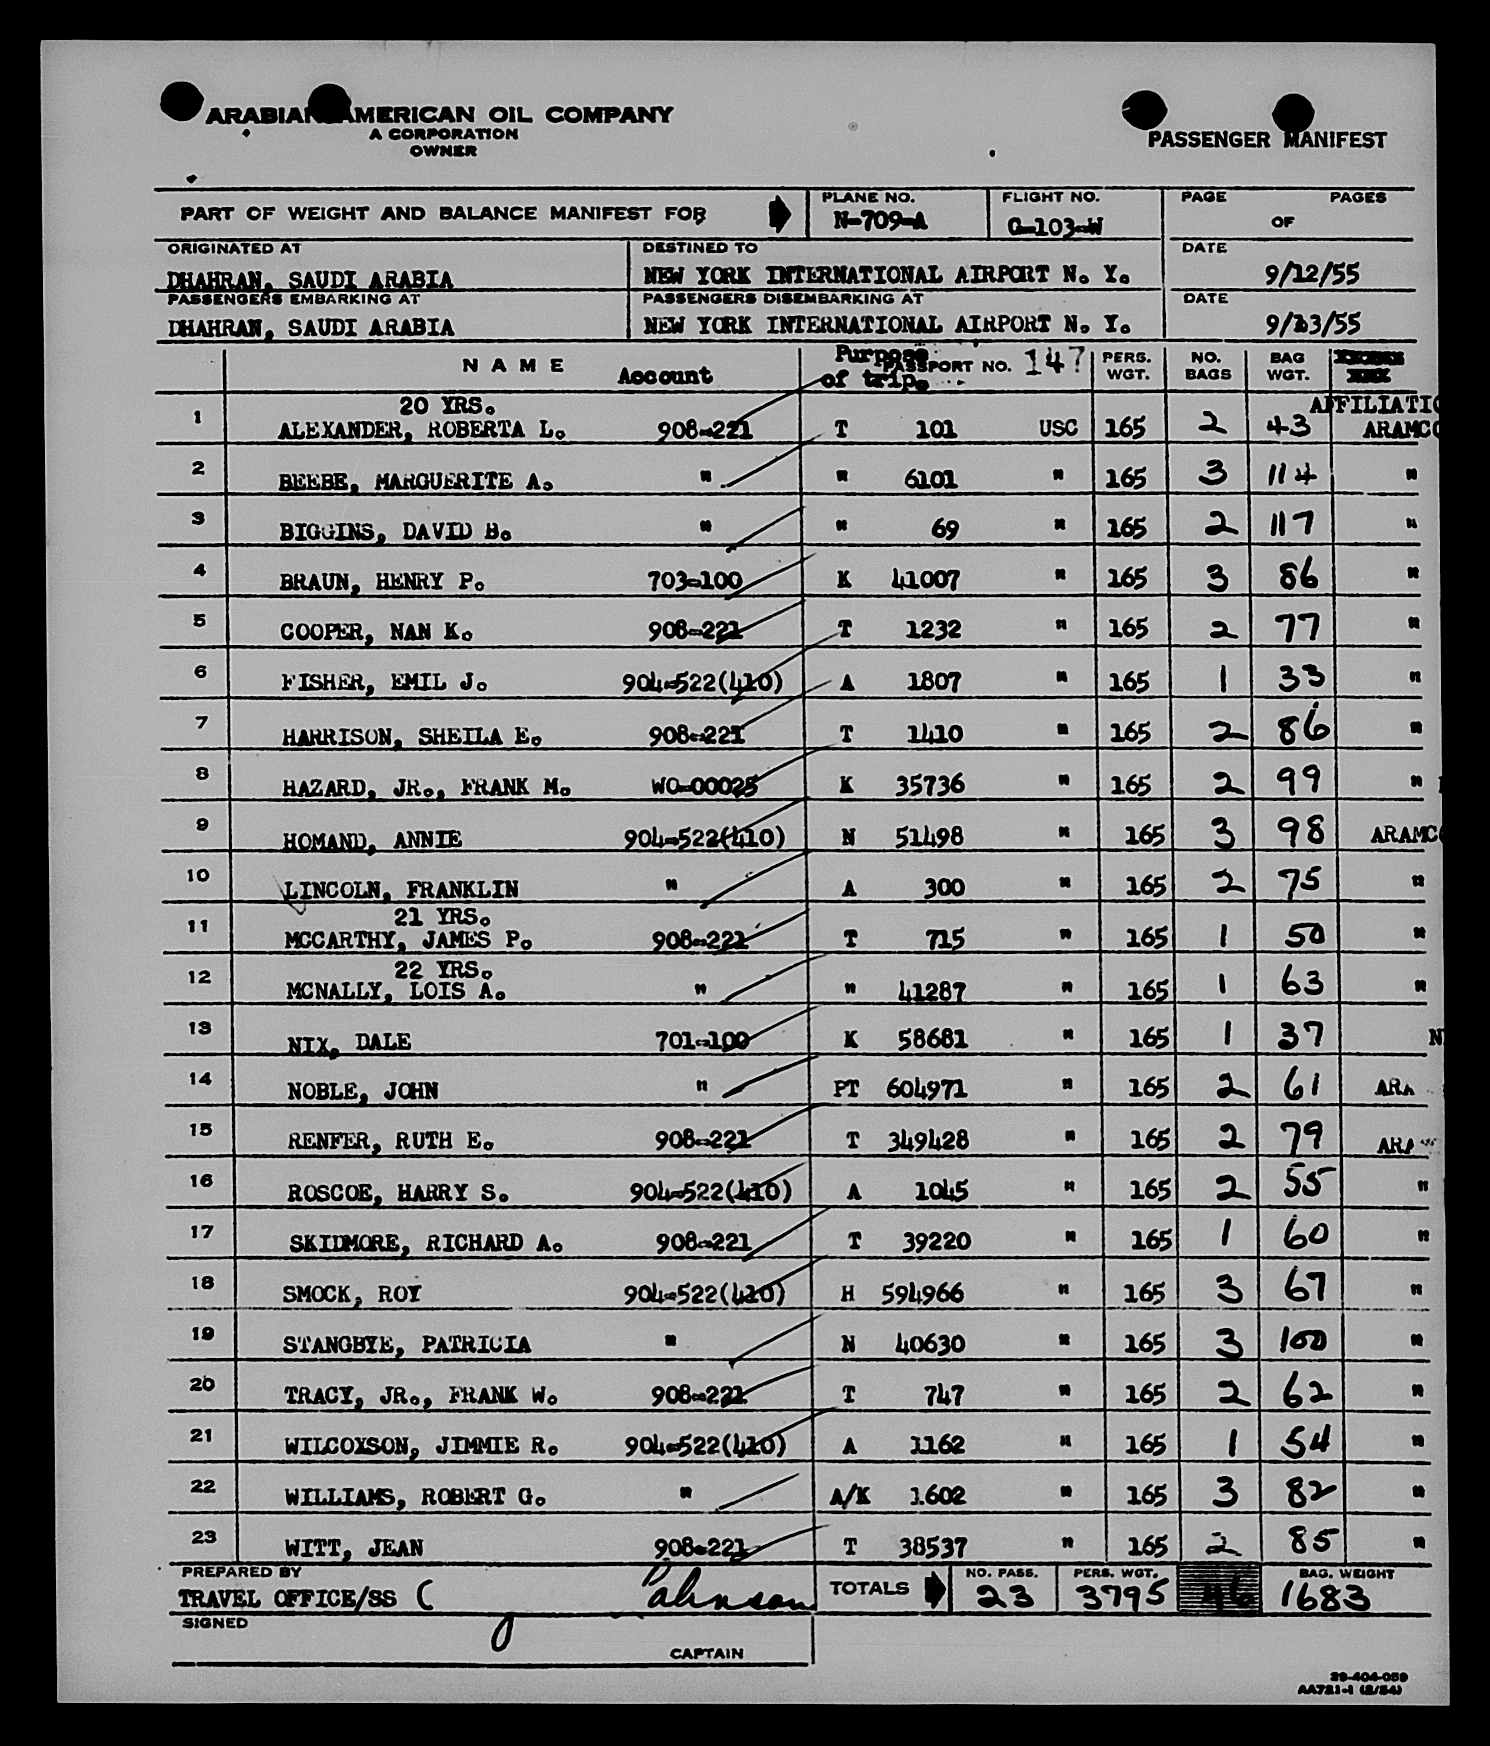 ARABIAN AMERICAN OIL COMPANY
A CORPORATION
OWNER
PASSENGER MANIFEST
PART OF WEIGHT AND BALANCE MANIFEST FOR
PLANE NO.
N-709-A
FLIGHT NO.
C-103-W
PAGE OF PAGES
ORIGINATED AT
DHAHRAN, SAUDI ARABIA
DESTINED TO
NEW YORK INTERNATIONAL AIRPORT N. Y.
DATE
9/12/55
PASSENGERS EMBARKING AT
DHAHRAN, SAUDI ARABIA
PASSENGERS DISEMBARKING AT
NEW YORK INTERNATIONAL AIRPORT N. Y.
DATE
9/13/55
NAME Account Purpose of trip. PASSPORT NO. 147 PERS. WGT. NO. BAGS BAG WGT.
20 YRS. AFFILIATIO
1 ALEXANDER, ROBERTA L. 908-221 T 101 USC 165 2 43 ARAMCO
2 BEEBE, MARGUERITE A. " " 6101 " 165 3 114 "
3 BIGGINS, DAVID B. " " 69 " 165 2 117 "
4 BRAUN, HENRY P. 703-100 K 41007 " 165 3 86 "
5 COOPER, NAN K. 908-221 T 1232 " 165 2 77 "
6 FISHER, EMIL J. 904-522(410) A 1807 " 165 1 33 "
7 HARRISON, SHEILA E. 908-221 T 1410 " 165 2 86 "
8 HAZARD, JR., FRANK M. WO-00025 K 35736 " 165 2 99 "
9 HOMAND, ANNIE 904-522(410) N 51498 " 165 3 98 ARAMCO
10 LINCOLN, FRANKLIN " A 300 " 165 2 75 "
21 YRS.
11 MCCARTHY, JAMES P. 908-221 T 715 " 165 1 50 "
22 YRS.
12 MCNALLY, LOIS A. " " 41287 " 165 1 63 "
13 NIX, DALE 701-100 K 58681 " 165 1 37 N
14 NOBLE, JOHN " PT 604971 " 165 2 61 ARA
15 RENFER, RUTH E. 908-221 T 349428 " 165 2 79 ARA
16 ROSCOE, HARRY S. 904-522(410) A 1045 " 165 2 55 "
17 SKIDMORE, RICHARD A. 908-221 T 39220 " 165 1 60 "
18 SMOCK, ROY 904-522(410) H 594966 " 165 3 67 "
19 STANGBYE, PATRICIA " N 40630 " 165 3 100 "
20 TRACY, JR., FRANK W. 908-221 T 747 " 165 2 62 "
21 WILCOXSON, JIMMIE R. 904-522(410) A 1162 " 165 1 54 "
22 WILLIAMS, ROBERT G. " A/K 1602 " 165 3 82 "
23 WITT, JEAN 908-221 T 38537 " 165 2 85 "
PREPARED BY
TRAVEL OFFICE/SS
TOTALS
NO. PASS.
23
PERS. WGT.
3795
46
BAG. WEIGHT
1683
SIGNED
CAPTAIN
29-404-059
AA721-1 (2/54)